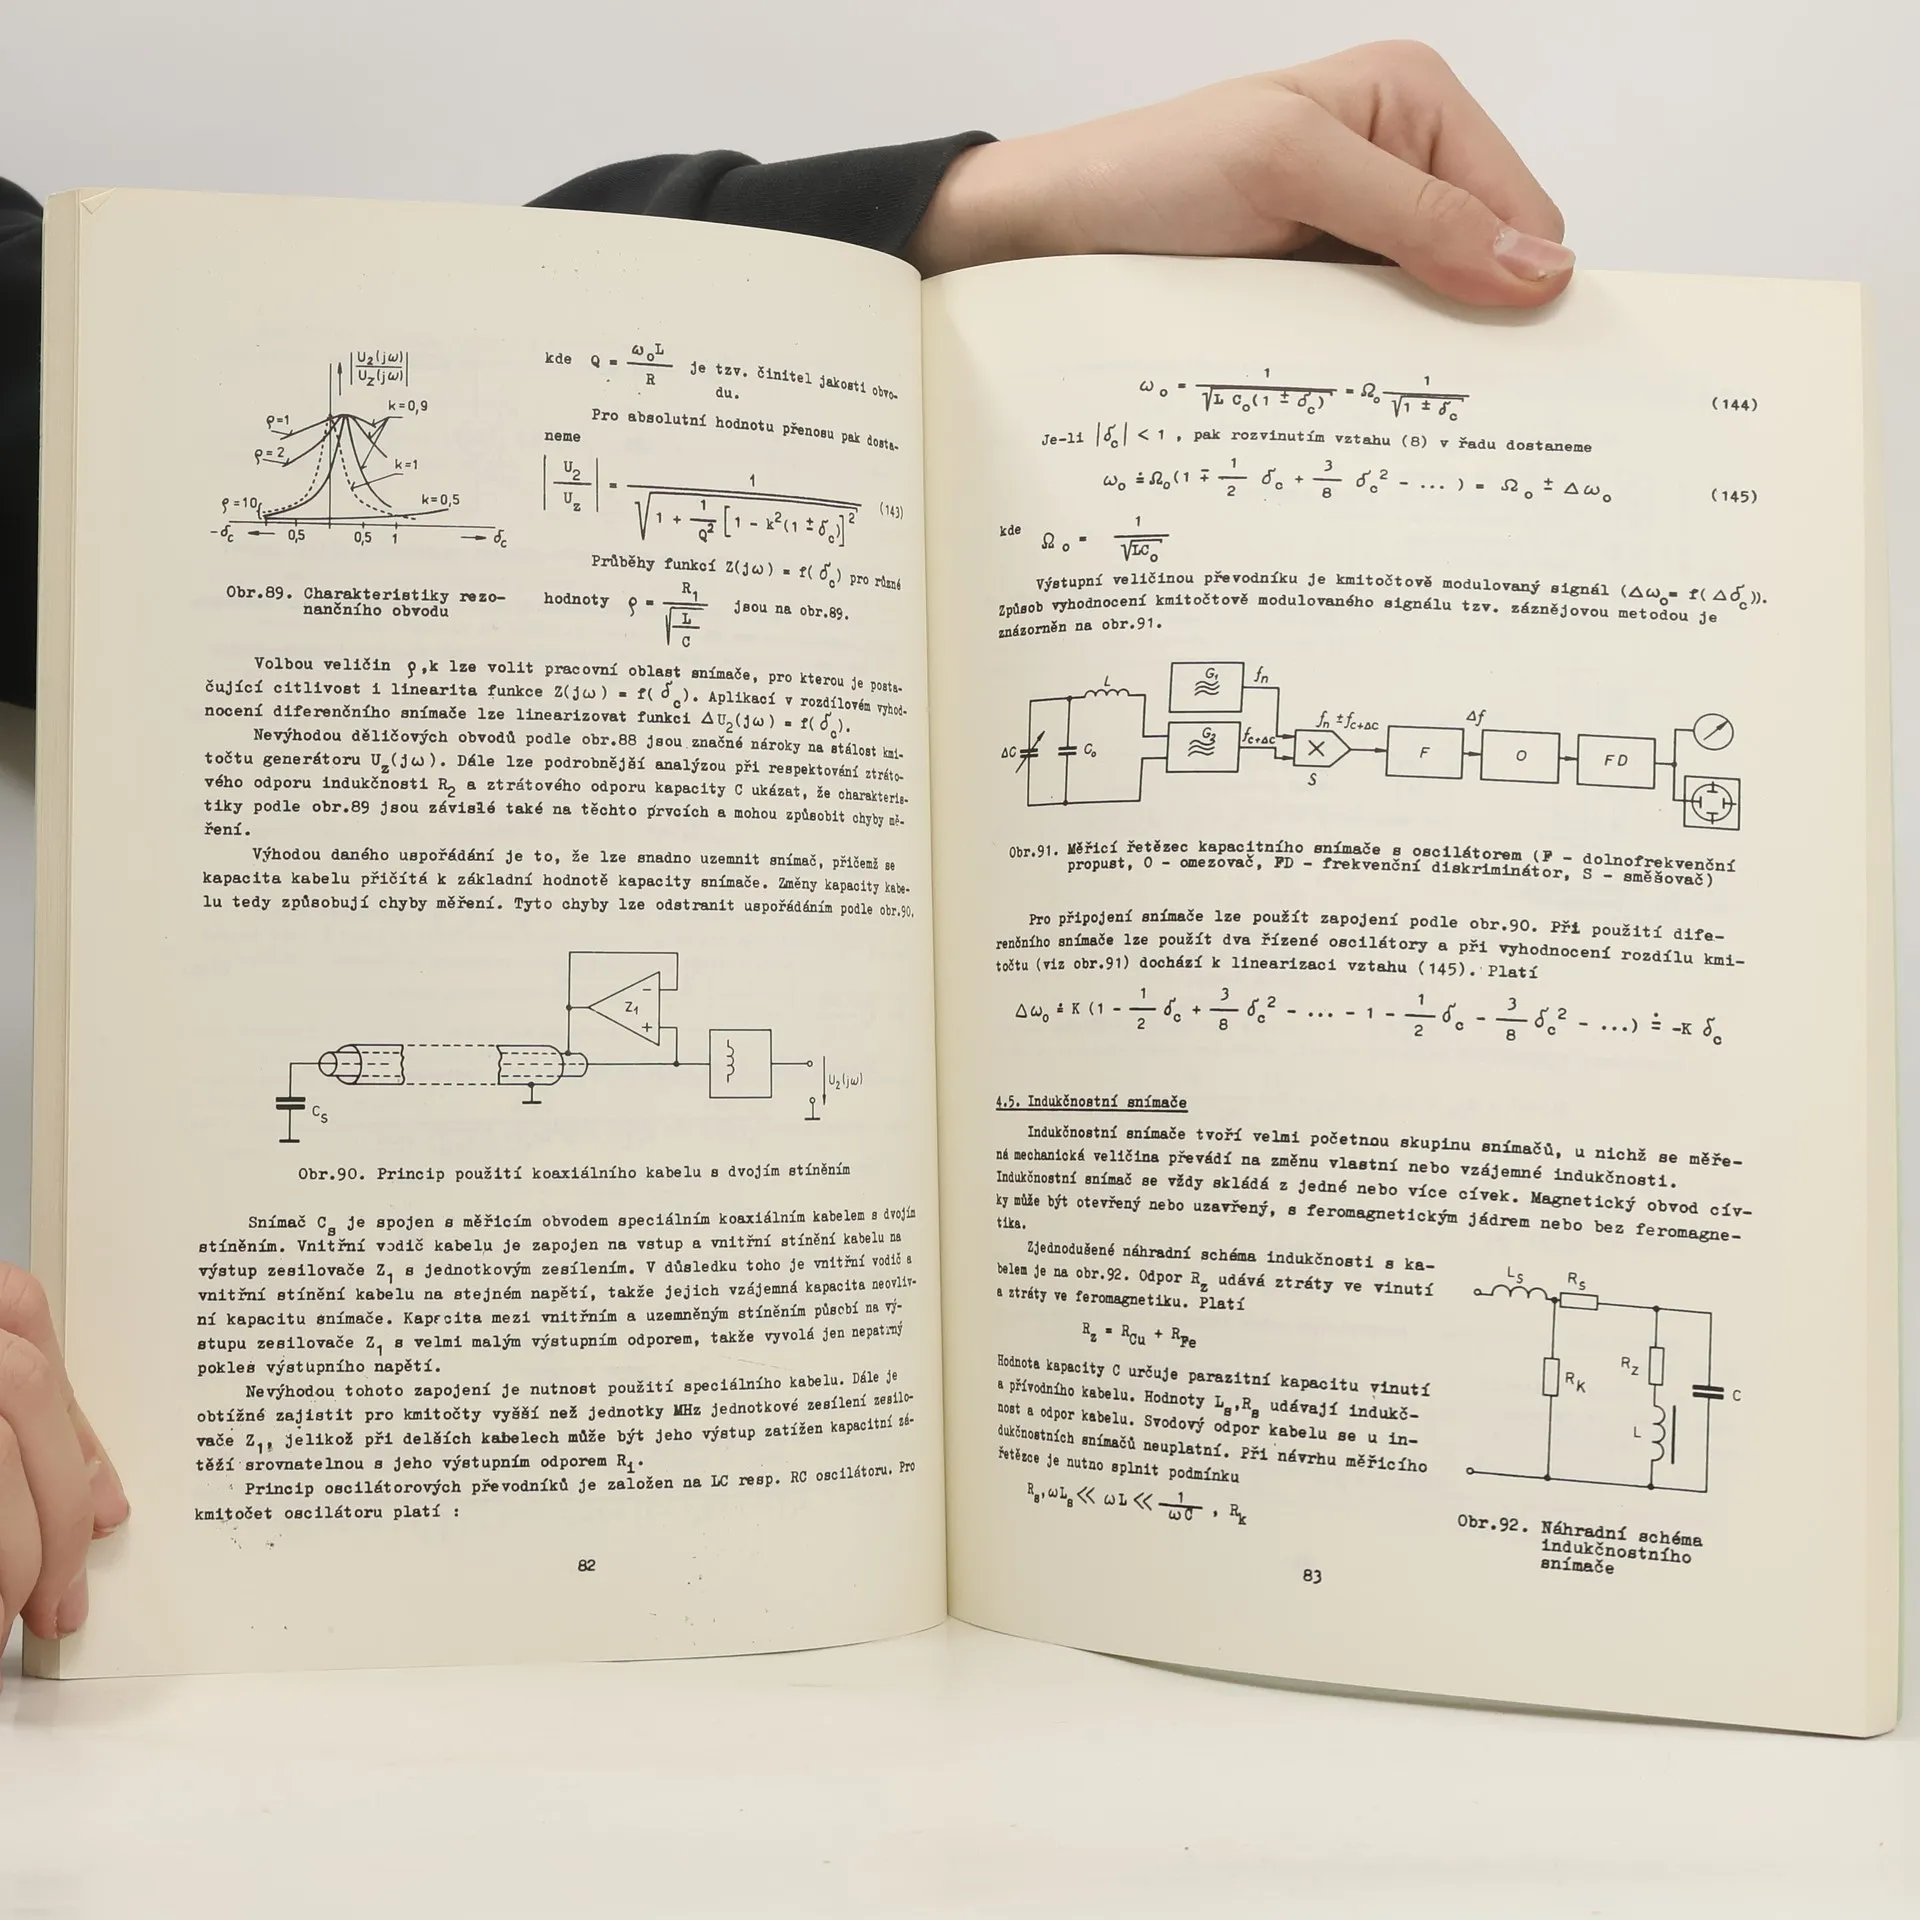 |U₂(jω)|
|U_Z(jω)|
ρ=1
k=0,9
ρ=2
k=1
ρ=10
k=0,5
-δ_c
0,5
0,5
1
δ_c
Obr.89. Charakteristiky rezo-
nančního obvodu
kde Q = ω₀L / R je tzv. činitel jakosti obvo-
du.
Pro absolutní hodnotu přenosu pak dosta-
neme
|U₂ / U_z| = 1 / √(1 + 1/Q² [1 - k²(1 ± δ_c)]²) (143)
Průběhy funkcí Z(jω) = f( δ_c) pro různé
hodnoty ρ = R₁ / √(L/C) jsou na obr.89.
Volbou veličin ρ,k lze volit pracovní oblast snímače, pro kterou je posta-
čující citlivost i linearita funkce Z(jω) = f( δ_c). Aplikací v rozdílovém vyhod-
nocení diferenčního snímače lze linearizovat funkci ΔU₂(jω) = f(δ_c).
Nevýhodou děličových obvodů podle obr.88 jsou značné nároky na stálost kmi-
točtu generátoru U_z(jω). Dále lze podrobnější analýzou při respektování ztráto-
vého odporu indukčnosti R₂ a ztrátového odporu kapacity C ukázat, že charakteris-
tiky podle obr.89 jsou závislé také na těchto prvcích a mohou způsobit chyby mě-
ření.
Výhodou daného uspořádání je to, že lze snadno uzemnit snímač, přičemž se
kapacita kabelu přičítá k základní hodnotě kapacity snímače. Změny kapacity kabe-
lu tedy způsobují chyby měření. Tyto chyby lze odstranit uspořádáním podle obr.90.
Z₁
-
+
C_S
U₂(jω)
Obr.90. Princip použití koaxiálního kabelu s dvojím stíněním
Snímač C_s je spojen s měřicím obvodem speciálním koaxiálním kabelem s dvojím
stíněním. Vnitřní vodič kabelu je zapojen na vstup a vnitřní stínění kabelu na
výstup zesilovače Z₁ s jednotkovým zesílením. V důsledku toho je vnitřní vodič a
vnitřní stínění kabelu na stejném napětí, takže jejich vzájemná kapacita neovliv-
ní kapacitu snímače. Kapacita mezi vnitřním a uzemněným stíněním působí na vý-
stupu zesilovače Z₁ s velmi malým výstupním odporem, takže vyvolá jen nepatrný
pokles výstupního napětí.
Nevýhodou tohoto zapojení je nutnost použití speciálního kabelu. Dále je
obtížné zajistit pro kmitočty vyšší než jednotky MHz jednotkové zesílení zesilo-
vače Z₁, jelikož při delších kabelech může být jeho výstup zatížen kapacitní zá-
těží srovnatelnou s jeho výstupním odporem R₁.
Princip oscilátorových převodníků je založen na LC resp. RC oscilátoru. Pro
kmitočet oscilátoru platí :
82
ω₀ = 1 / √(L C₀(1 ± δ_c)) = Ω₀ 1 / √(1 ± δ_c) (144)
Je-li |δ_c| < 1 , pak rozvinutím vztahu (8) v řadu dostaneme
ω₀ ≐ Ω₀(1 ∓ 1/2 δ_c + 3/8 δ_c² - ... ) = Ω₀ ± Δω₀ (145)
kde Ω₀ = 1 / √(LC₀)
Výstupní veličinou převodníku je kmitočtově modulovaný signál (Δω₀= f( Δδ_c)).
Způsob vyhodnocení kmitočtově modulovaného signálu tzv. záznějovou metodou je
znázorněn na obr.91.
L
G₁
f_n
ΔC
C₀
G₂
f_C+ΔC
f_n ± f_C+ΔC
S
F
Δf
O
FD
Obr.91. Měřicí řetězec kapacitního snímače s oscilátorem (F - dolnofrekvenční
propust, O - omezovač, FD - frekvenční diskriminátor, S - směšovač)
Pro připojení snímače lze použít zapojení podle obr.90. Při použití dife-
renčního snímače lze použít dva řízené oscilátory a při vyhodnocení rozdílu kmi-
točtu (viz obr.91) dochází k linearizaci vztahu (145). Platí
Δω₀ ≐ K (1 - 1/2 δ_c + 3/8 δ_c² - ... - 1 - 1/2 δ_c - 3/8 δ_c² - ...) ≐ -K δ_c
4.5. Indukčnostní snímače
Indukčnostní snímače tvoří velmi početnou skupinu snímačů, u nichž se měře-
ná mechanická veličina převádí na změnu vlastní nebo vzájemné indukčnosti.
Indukčnostní snímač se vždy skládá z jedné nebo více cívek. Magnetický obvod cív-
ky může být otevřený nebo uzavřený, s feromagnetickým jádrem nebo bez feromagne-
tika.
Zjednodušené náhradní schéma indukčnosti s ka-
belem je na obr.92. Odpor R_z udává ztráty ve vinutí
a ztráty ve feromagnetiku. Platí
R_z = R_Cu + R_Fe
Hodnota kapacity C určuje parazitní kapacitu vinutí
a přívodního kabelu. Hodnoty L_s,R_s udávají indukč-
nost a odpor kabelu. Svodový odpor kabelu se u in-
dukčnostních snímačů neuplatní. Při návrhu měřicího
řetězce je nutno splnit podmínku
R_s,ωL_s ≪ ωL ≪ 1/ωC , R_k
L_S
R_S
R_K
R_Z
L
C
Obr.92. Náhradní schéma
indukčnostního
snímače
83